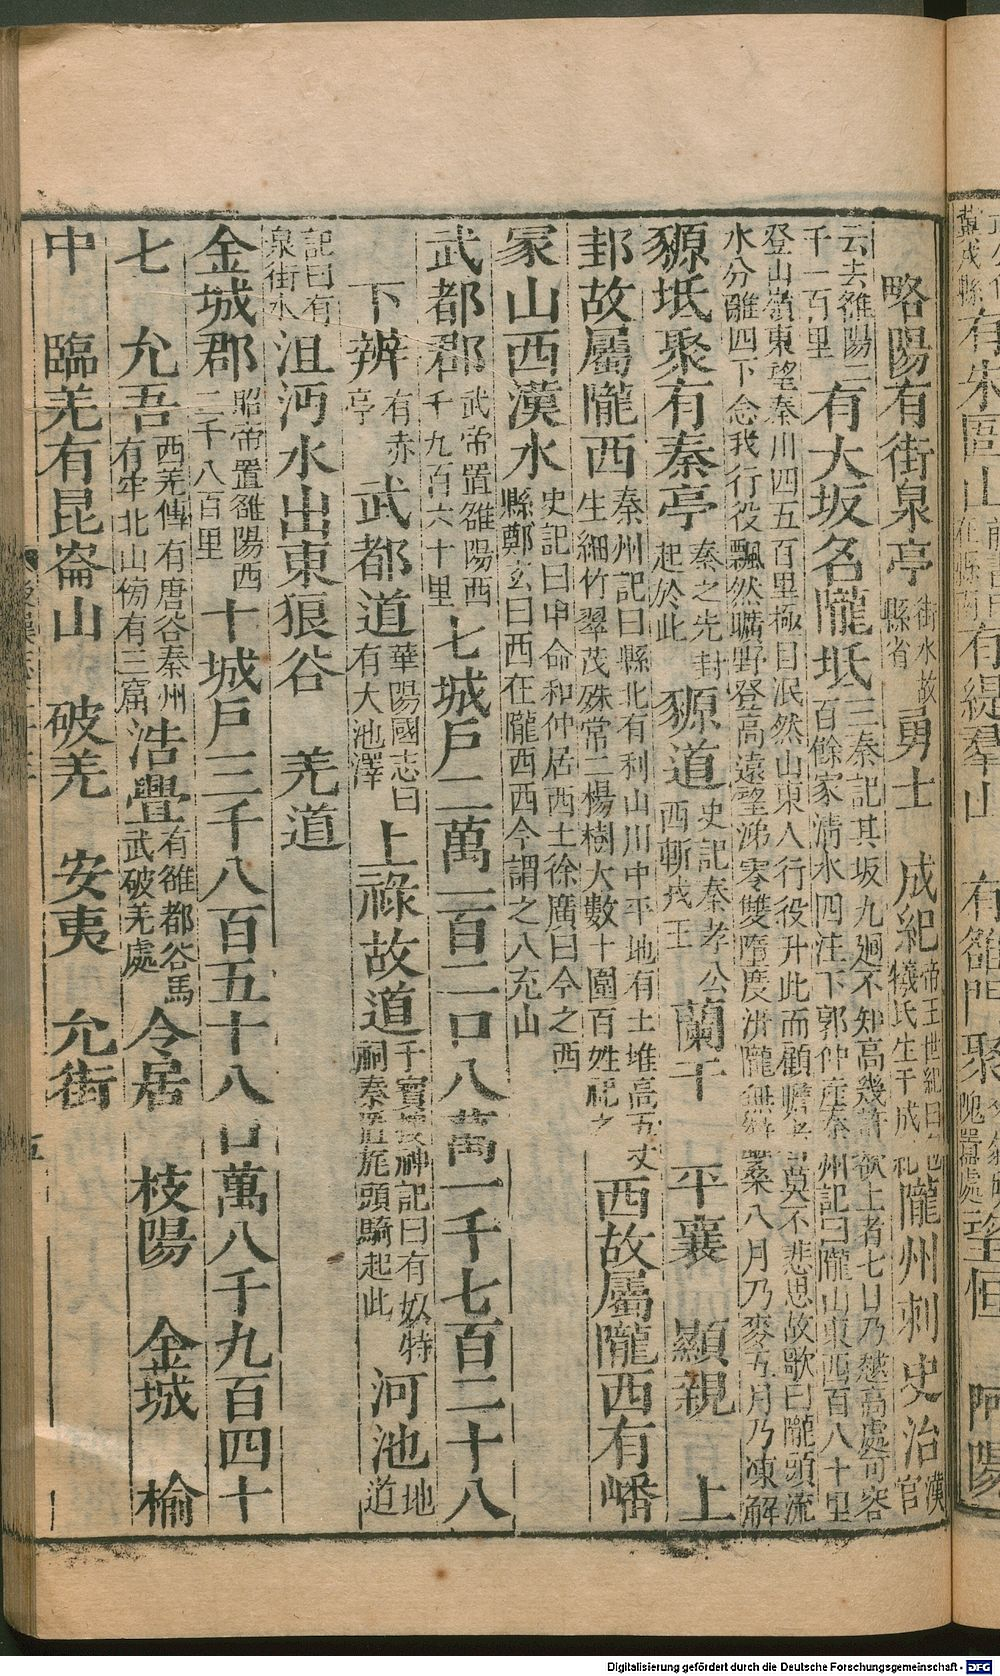 略陽有街泉亭街水故縣省勇士　成紀帝王世紀曰庖犧氏生于成紀隴州刺史治漢官
云去雒陽二千一百里有大坂名隴坻三秦記其坂九廻不知高幾許欲上者七日乃越高處可容百餘家淸水四注下郭仲產秦州記曰隴山東西百八十里
登山嶺東望秦川四五百里極目泯然山東人行役升此而顧瞻者莫不悲思故歌曰隴頭流水分離四下念我行役飄然曠野登高遠望涕零雙墮度汧隴無蠶桑八月乃麥五月乃凍解
豲坻聚有秦亭秦之先封起於此豲道史記秦孝公西斬戎王蘭干　平襄　顯親　上
邽故屬隴西秦州記曰縣北有利山川中平地有土堆高五丈生細竹翠茂殊常二楊樹大數十圍百姓祀之西故屬隴西有嶓
冢山西漢水史記曰申命和仲居西土徐廣曰今之西縣鄭玄曰西在隴西西今謂之八充山
武都郡武帝置雒陽西千九百六十里七城戶二萬一百二口八萬一千七百二十八
下辨有赤亭武都道華陽國志曰有大池澤上祿故道干寶搜神記曰有奴特祠秦置旄頭騎起此河池地道
記曰有泉街水沮沔水出東狼谷　羌道
金城郡昭帝置雒陽西二千八百里十城戶三千八百五十八口萬八千九百四十
七　允吾西羌傳有唐谷秦州有牢北山傍有三窟浩亹有雒都谷馬武破羌處令居　枝陽　金城　榆
中　臨羌有昆崙山　破羌　安夷　允街
五
冀戎縣有朱圄山　有緹羣山　有雒門聚　隗囂處望恒　阿陽
Digitalisierung gefördert durch die Deutsche Forschungsgemeinschaft - DFG